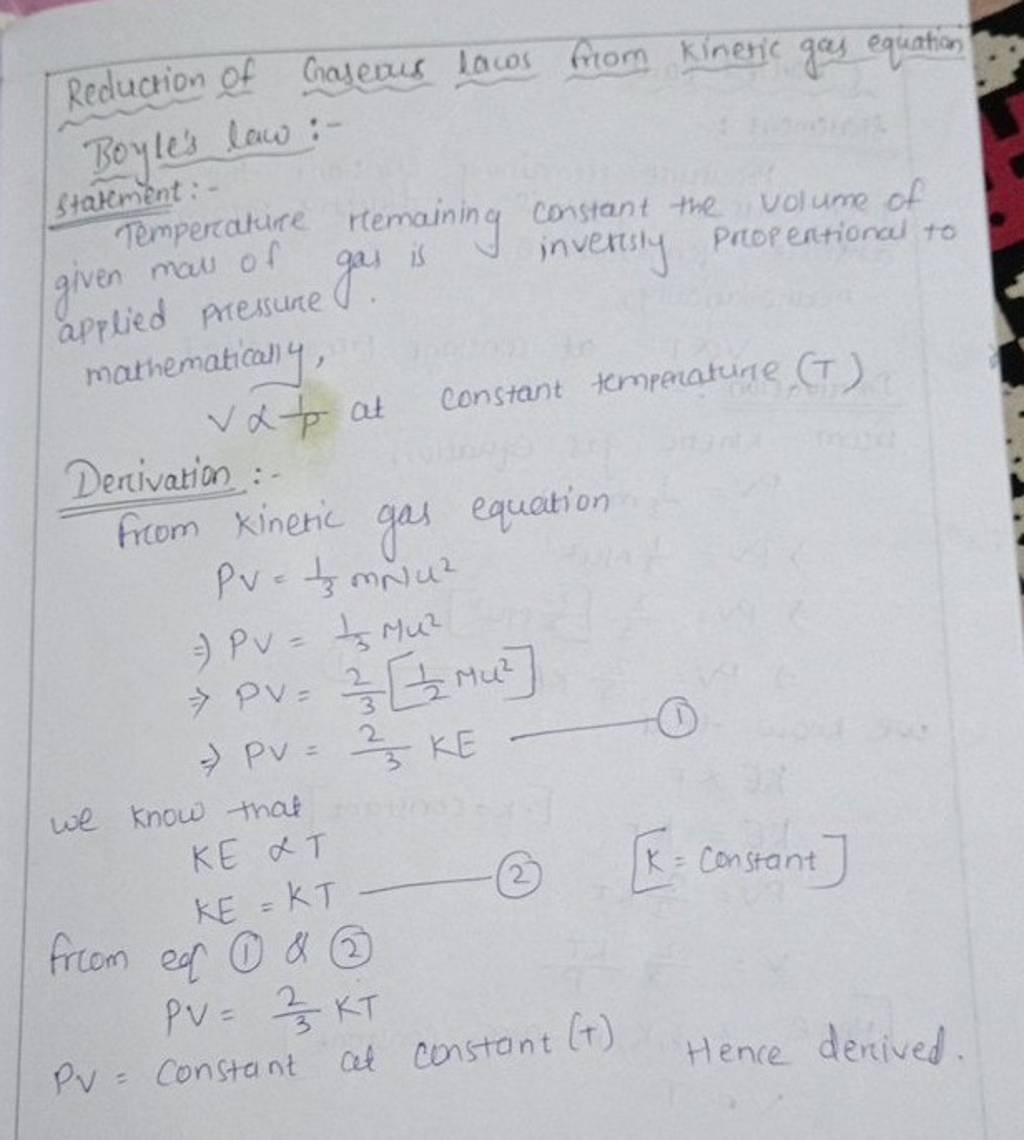 Reduction of Gaseous laws from kinetic gas equation
Boyle's law :-
Statement :-
Temperature remaining constant the volume of
given mass of gas is inversly propentional to
applied pressure.
mathematically,
V ∝ 1/P at constant temperature (T)
Derivation :-
from kinetic gas equation
PV = 1/3 mNu²
⇒ PV = 1/3 Mu²
⇒ PV = 2/3 [1/2 Mu²]
⇒ PV = 2/3 KE —— ①
we know that
KE ∝ T
KE = KT —— ② [K = Constant]
from eq ① & ②
PV = 2/3 KT
PV = Constant at constant (T) Hence derived.